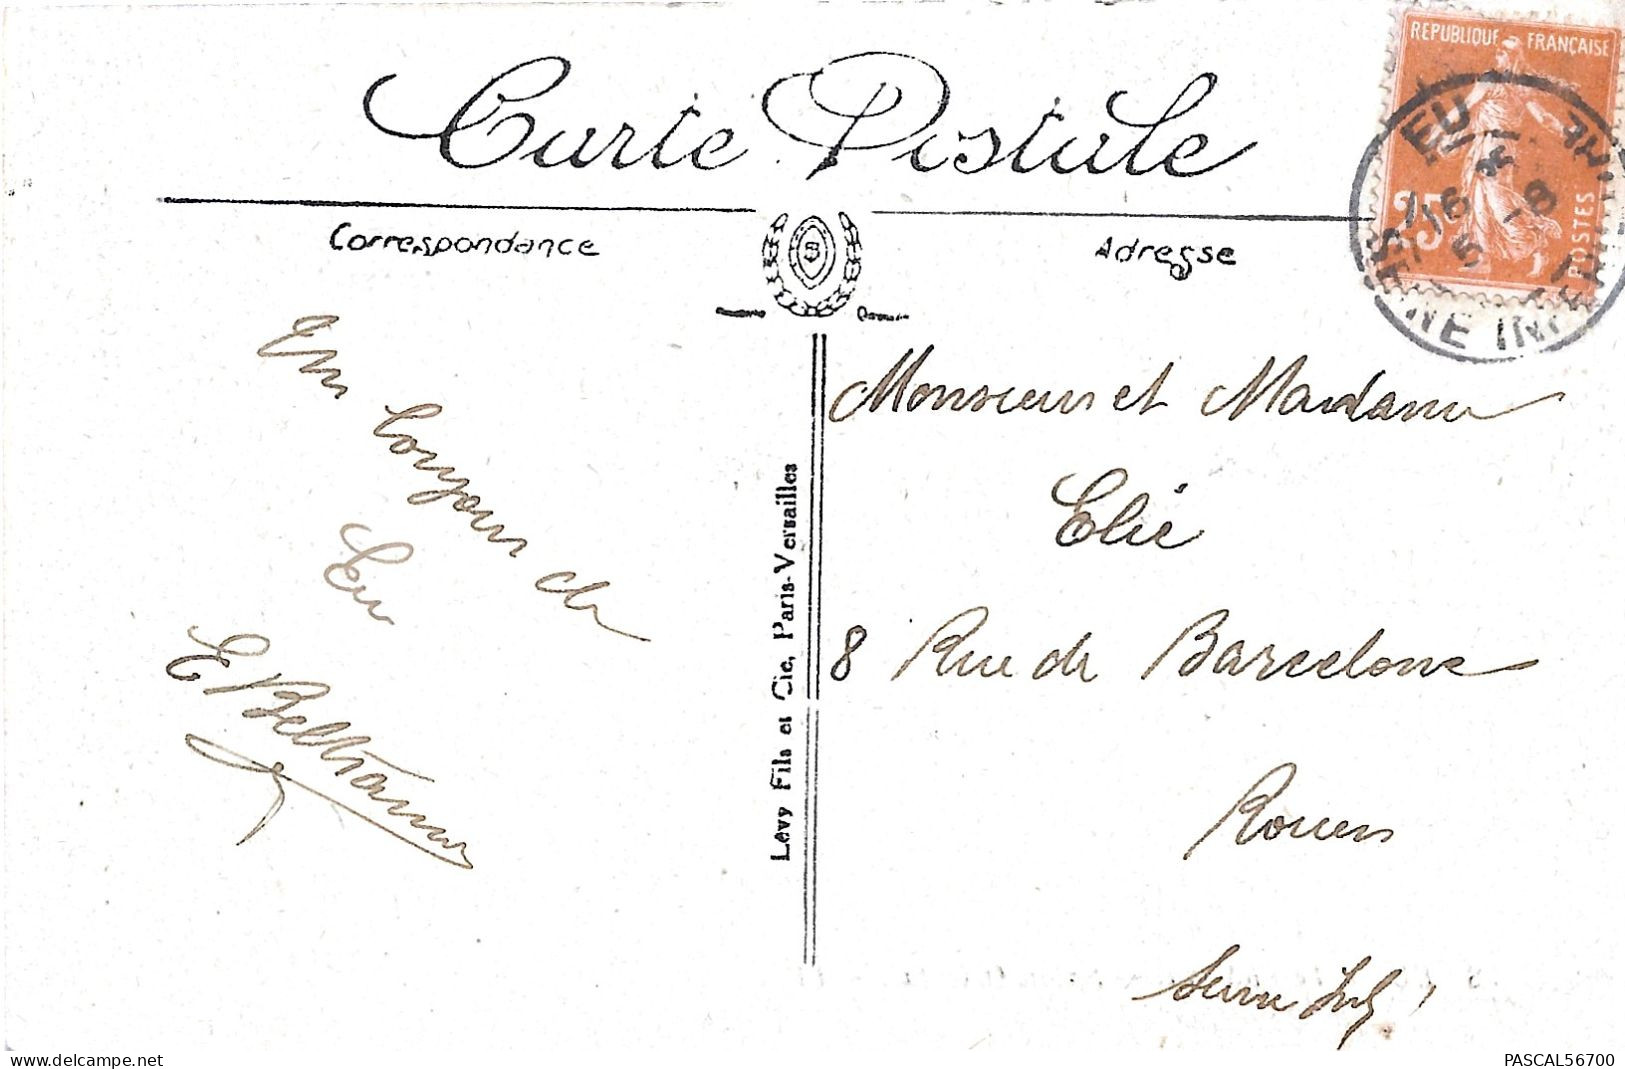 Carte Postale
Correspondance
Adresse
REPUBLIQUE FRANÇAISE
25
POSTES
EU
16
5 -8
NE INFER
Un bonjour de
Eu
E Beltramn
Levy Fils et Cie, Paris-Versailles
Monsieur et Madame
Elie
8 Rue de Barcelone
Rouen
Seine Inf
delcampe.net
PASCAL56700